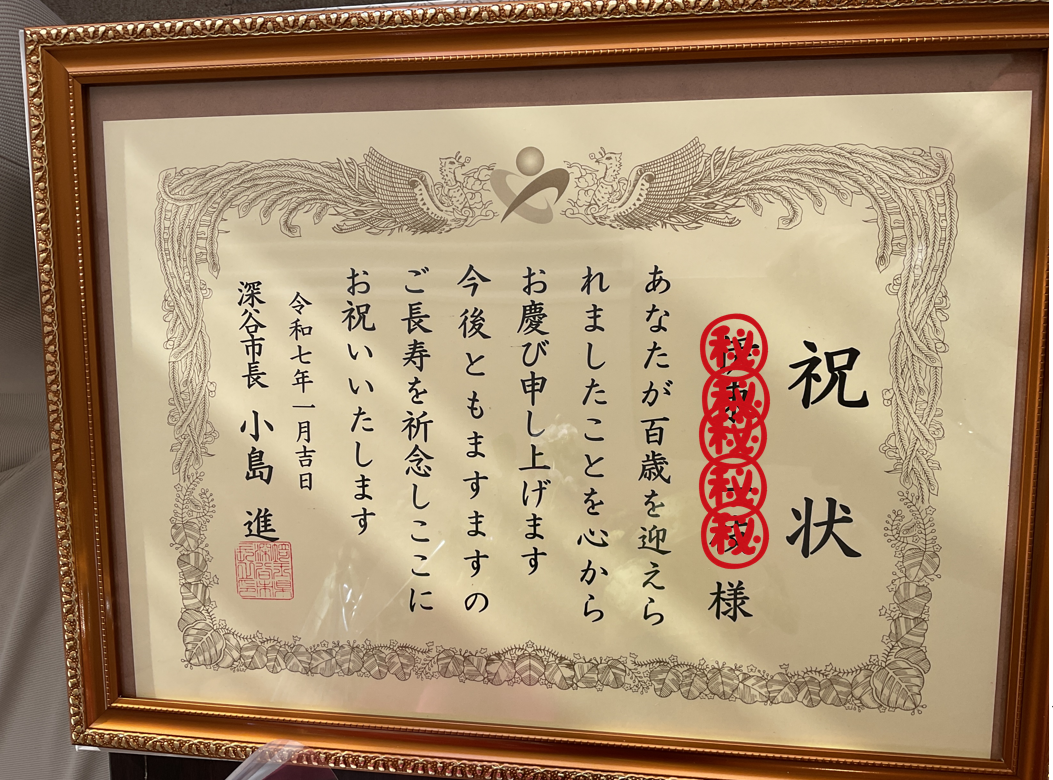 祝状
㊙㊙㊙㊙㊙様
あなたが百歳を迎えら
れましたことを心から
お慶び申し上げます
今後ともますますの
ご長寿を祈念しここに
お祝いいたします
令和七年一月吉日
深谷市長 小島 進